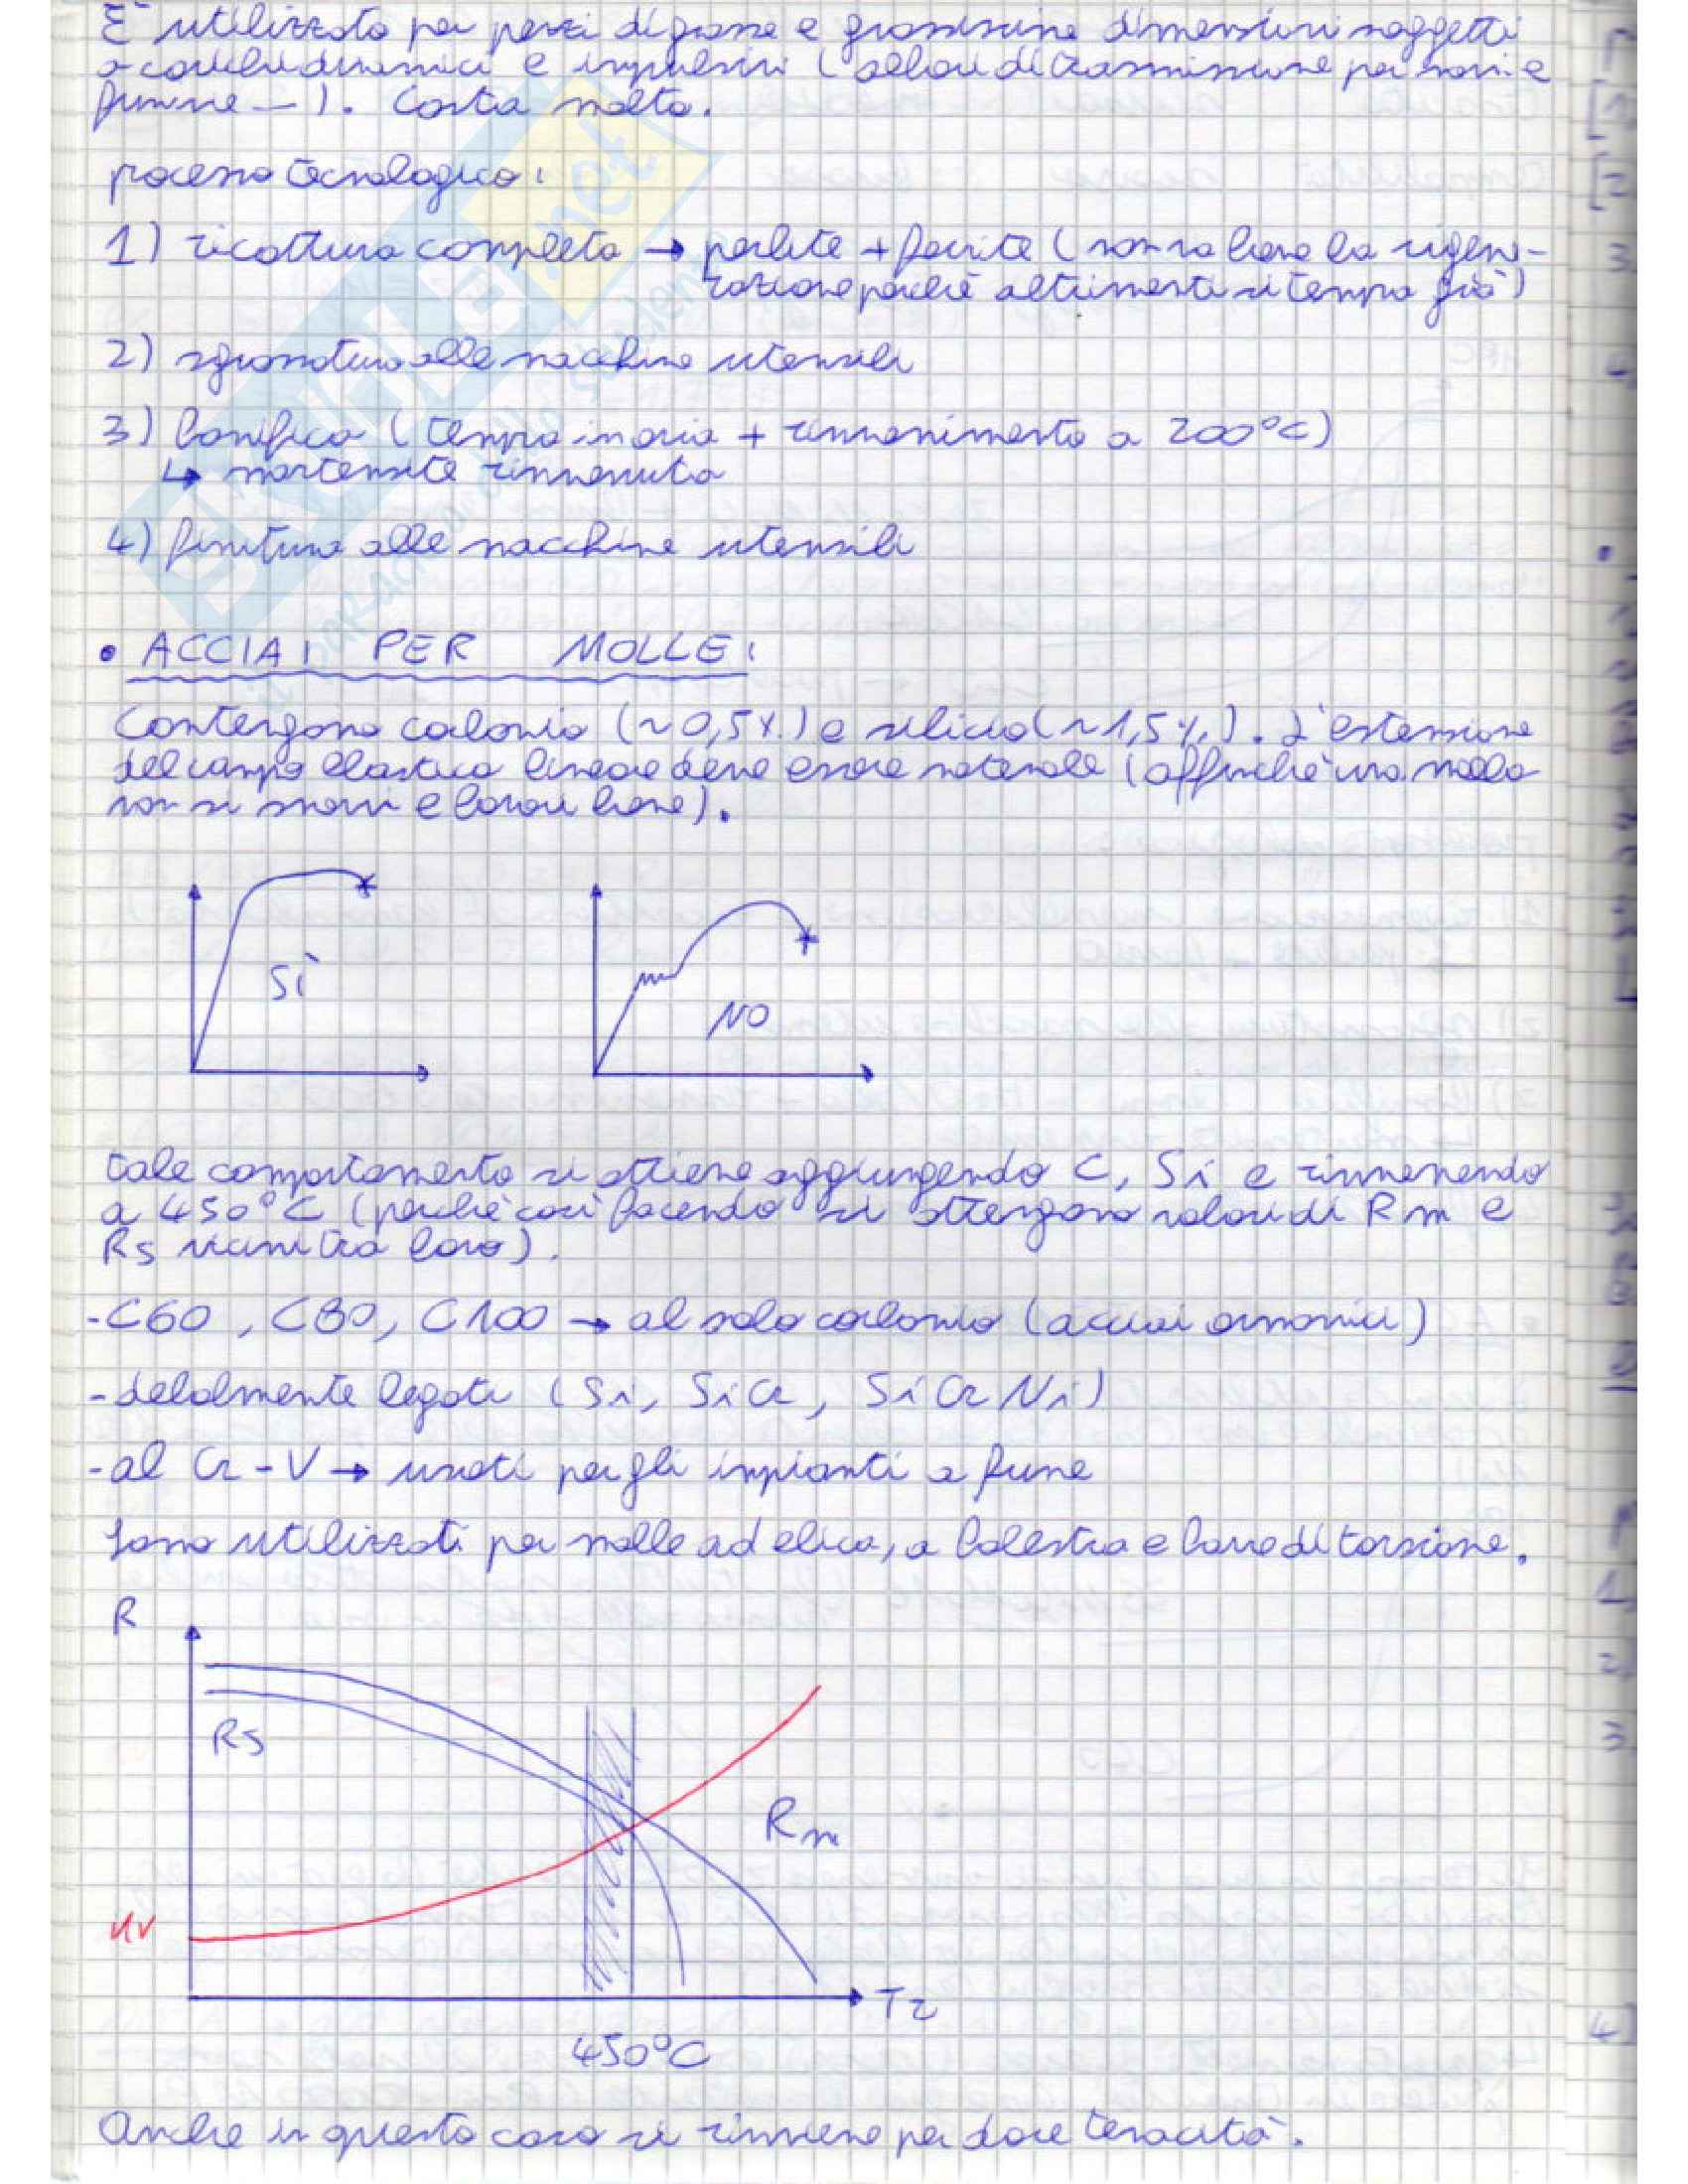 È utilizzato per pezzi di grosse e grossissime dimensioni soggetti
a carichi dinamici e impulsivi (alberi di trasmissione per navi e
funivie ...). Costa molto.
processo tecnologico:
1) ricottura completa → perlite + ferrite (non va bene la rigene-
razione perché altrimenti si tempra già)
2) sgrossatura alle macchine utensili
3) bonifica (tempra in aria + rinvenimento a 200°C)
↳ martensite rinvenuta
4) finitura alle macchine utensili
• ACCIAI PER MOLLE:
Contengono carbonio (~0,5%) e silicio (~1,5%). L'estensione
del campo elastico lineare deve essere notevole (affinché una molla
non si snervi e lavori bene).
SÌ
NO
tale comportamento si ottiene aggiungendo C, Si e rinvenendo
a 450°C (perché così facendo si ottengono valori di Rm e
Rs vicini tra loro).
- C60, C80, C100 → al solo carbonio (acciai armonici)
- debolmente legati (Si, SiCr, SiCrNi)
- al Cr-V → usati per gli impianti a fune
Sono utilizzati per molle ad elica, a balestra e barre di torsione.
R
Rs
Rm
KV
Tr
450°C
Anche in questo caso si rinviene per dare tenacità.
SKUOLA.net